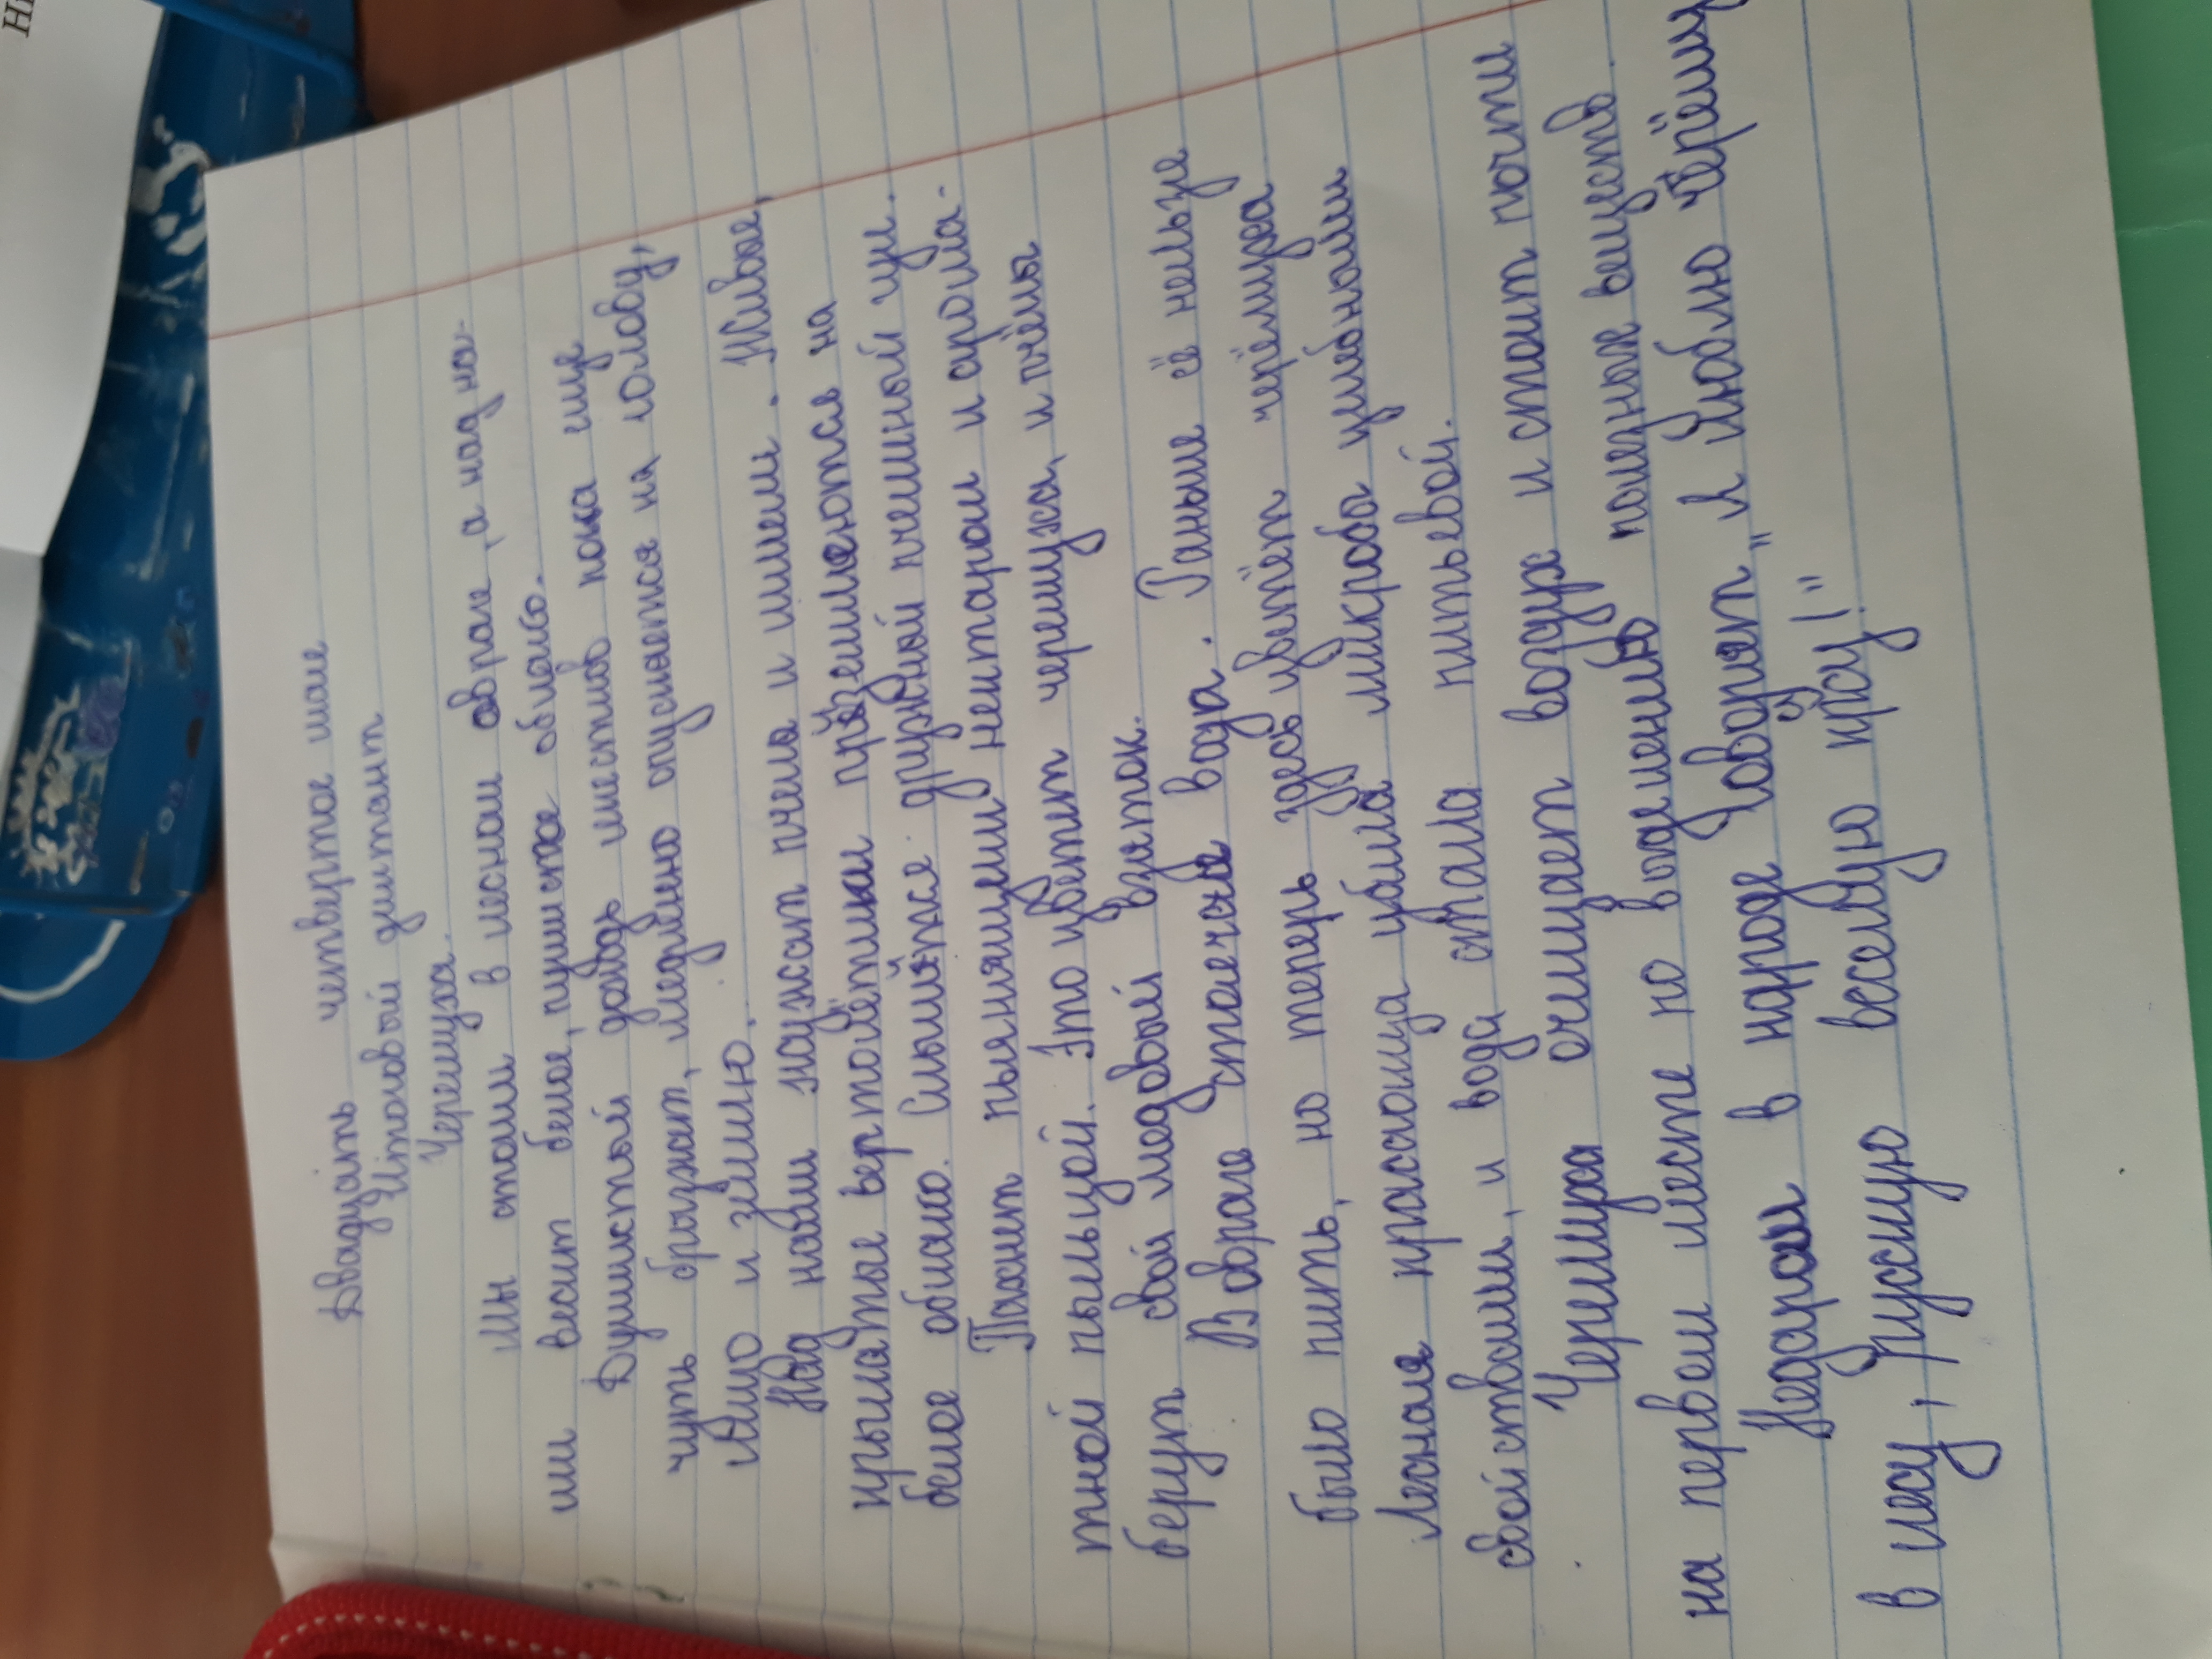 Двадцать четвертое мая
Итоговый диктант
Черемуха.
Мы стоим в лесном овраге, а над на-
ми висит белое, пушистое облако.
Душистый дождь лепестков пока еще
чуть брызжет, медленно опускается на голову,
лицо и землю.
Над нами кружат пчелы и шмели. Живые,
крылатые вертолётики приземляются на
белое облако. Слышится дружной пчелиный гул.
Пахнет пьянящим нектаром и арома-
тной пыльцой. Это цветет черемуха, и пчёлы
берут свой медовый взяток.
В овраге стоячая вода. Раньше её нельзя
было пить, но теперь здесь цветёт черёмуха
Лесная красавица убила микробы целебными
свойствами, и вода стала питьевой.
Черемуха очищает воздух и стоит почти
на первом месте по выделению полезных веществ.
Недаром в народе говорят: „Я люблю черёму
ху в лесу, русскую веселую красу!"